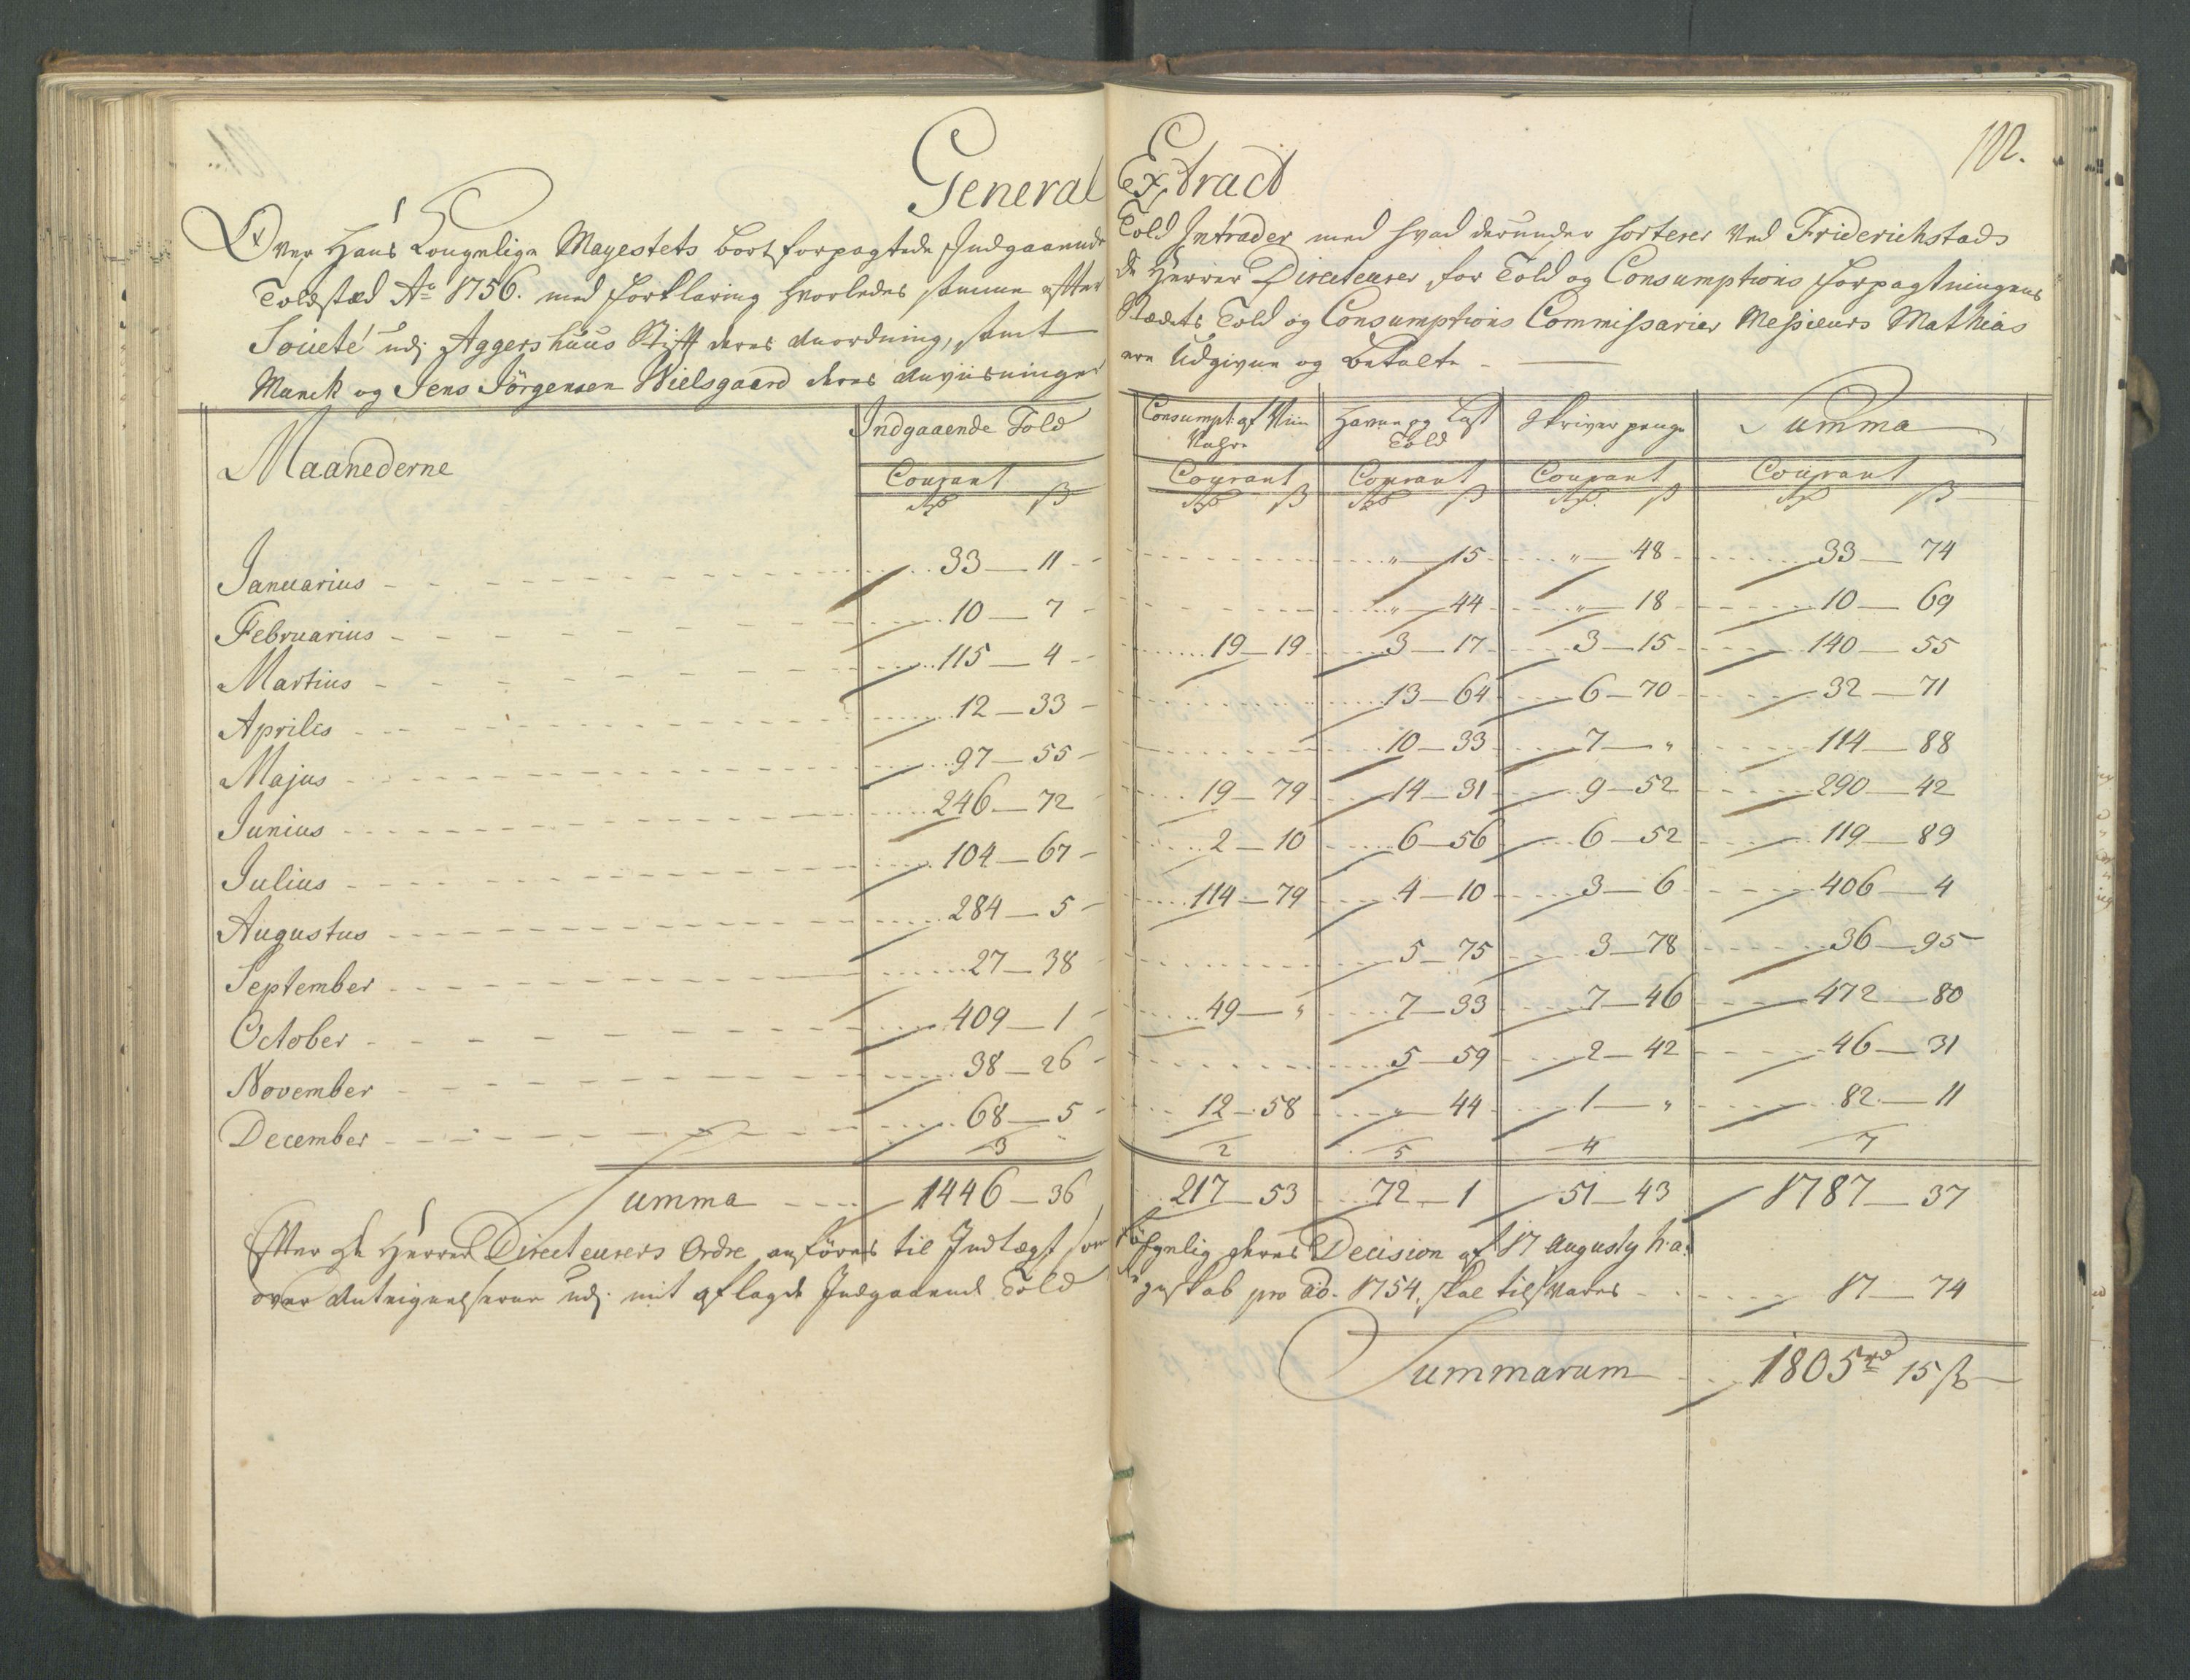 General Extract
102.
Over Hans Kongelige Mayestets bortforpagtede Indgaaende Told Intrader med hvad derunder sorterer ved Friderichstads
Toldsted Ao 1756. med Forklaring hvorledes samme efter de Herrer Directeurer for Told og Consumptions Forpagtningens
Societé udj Aggershuus Stift deres Anordning, samt Stædets Told og Consumptions Commissarier Messieurs Mathias
Munck og Jens Jörgensen Wielsgaard deres Anviisninger ere Udgivne og betalte -
Maanederne | Indgaaende Told | Consumpt: af Viin Vahre | Havne og Last Told | Skriver penge | Summa
Courant | Courant | Courant | Courant | Courant
Rdr ß | Rdr ß | Rdr ß | Rdr ß | Rdr ß
Januarius - 33 - 11 | | " - 15 | " - 48 | 33 - 74
Februarius - 10 - 7 | | " - 44 | " - 18 | 10 - 69
Martius - 115 - 4 | 19 - 19 | 3 - 17 | 3 - 15 | 140 - 55
Aprilis - 12 - 33 | | 13 - 64 | 6 - 70 | 32 - 71
Majus - 97 - 55 | | 10 - 33 | 7 - " | 114 - 88
Junius - 246 - 72 | 19 - 79 | 14 - 31 | 9 - 52 | 290 - 42
Julius - 104 - 67 | 2 - 10 | 6 - 56 | 6 - 52 | 119 - 89
Augustus - 284 - 5 | 114 - 79 | 4 - 10 | 3 - 6 | 406 - 4
September - 27 - 38 | | 5 - 75 | 3 - 78 | 36 - 95
October - 409 - 1 | 49 - " | 7 - 33 | 7 - 46 | 472 - 80
November - 38 - 26 | | 5 - 59 | 2 - 42 | 46 - 31
December - 68 - 5 | 12 - 58 | " - 44 | 1 - " | 82 - 11
3 | 2 | 5 | 4 | 7
Summa - 1446 - 36 | 217 - 53 | 72 - 1 | 51 - 43 | 1787 - 37
Efter de Herrer Directeurers Ordre anföres til Indtægt som fölgelig deres Decision af 17 Augusty h: a:
over Antegnelserne udj mit aflagde Indgaaende Told Regnskab pro Ao. 1754. skal tilsvares - 17 - 74
Summarum - 1805 rd 15 ß